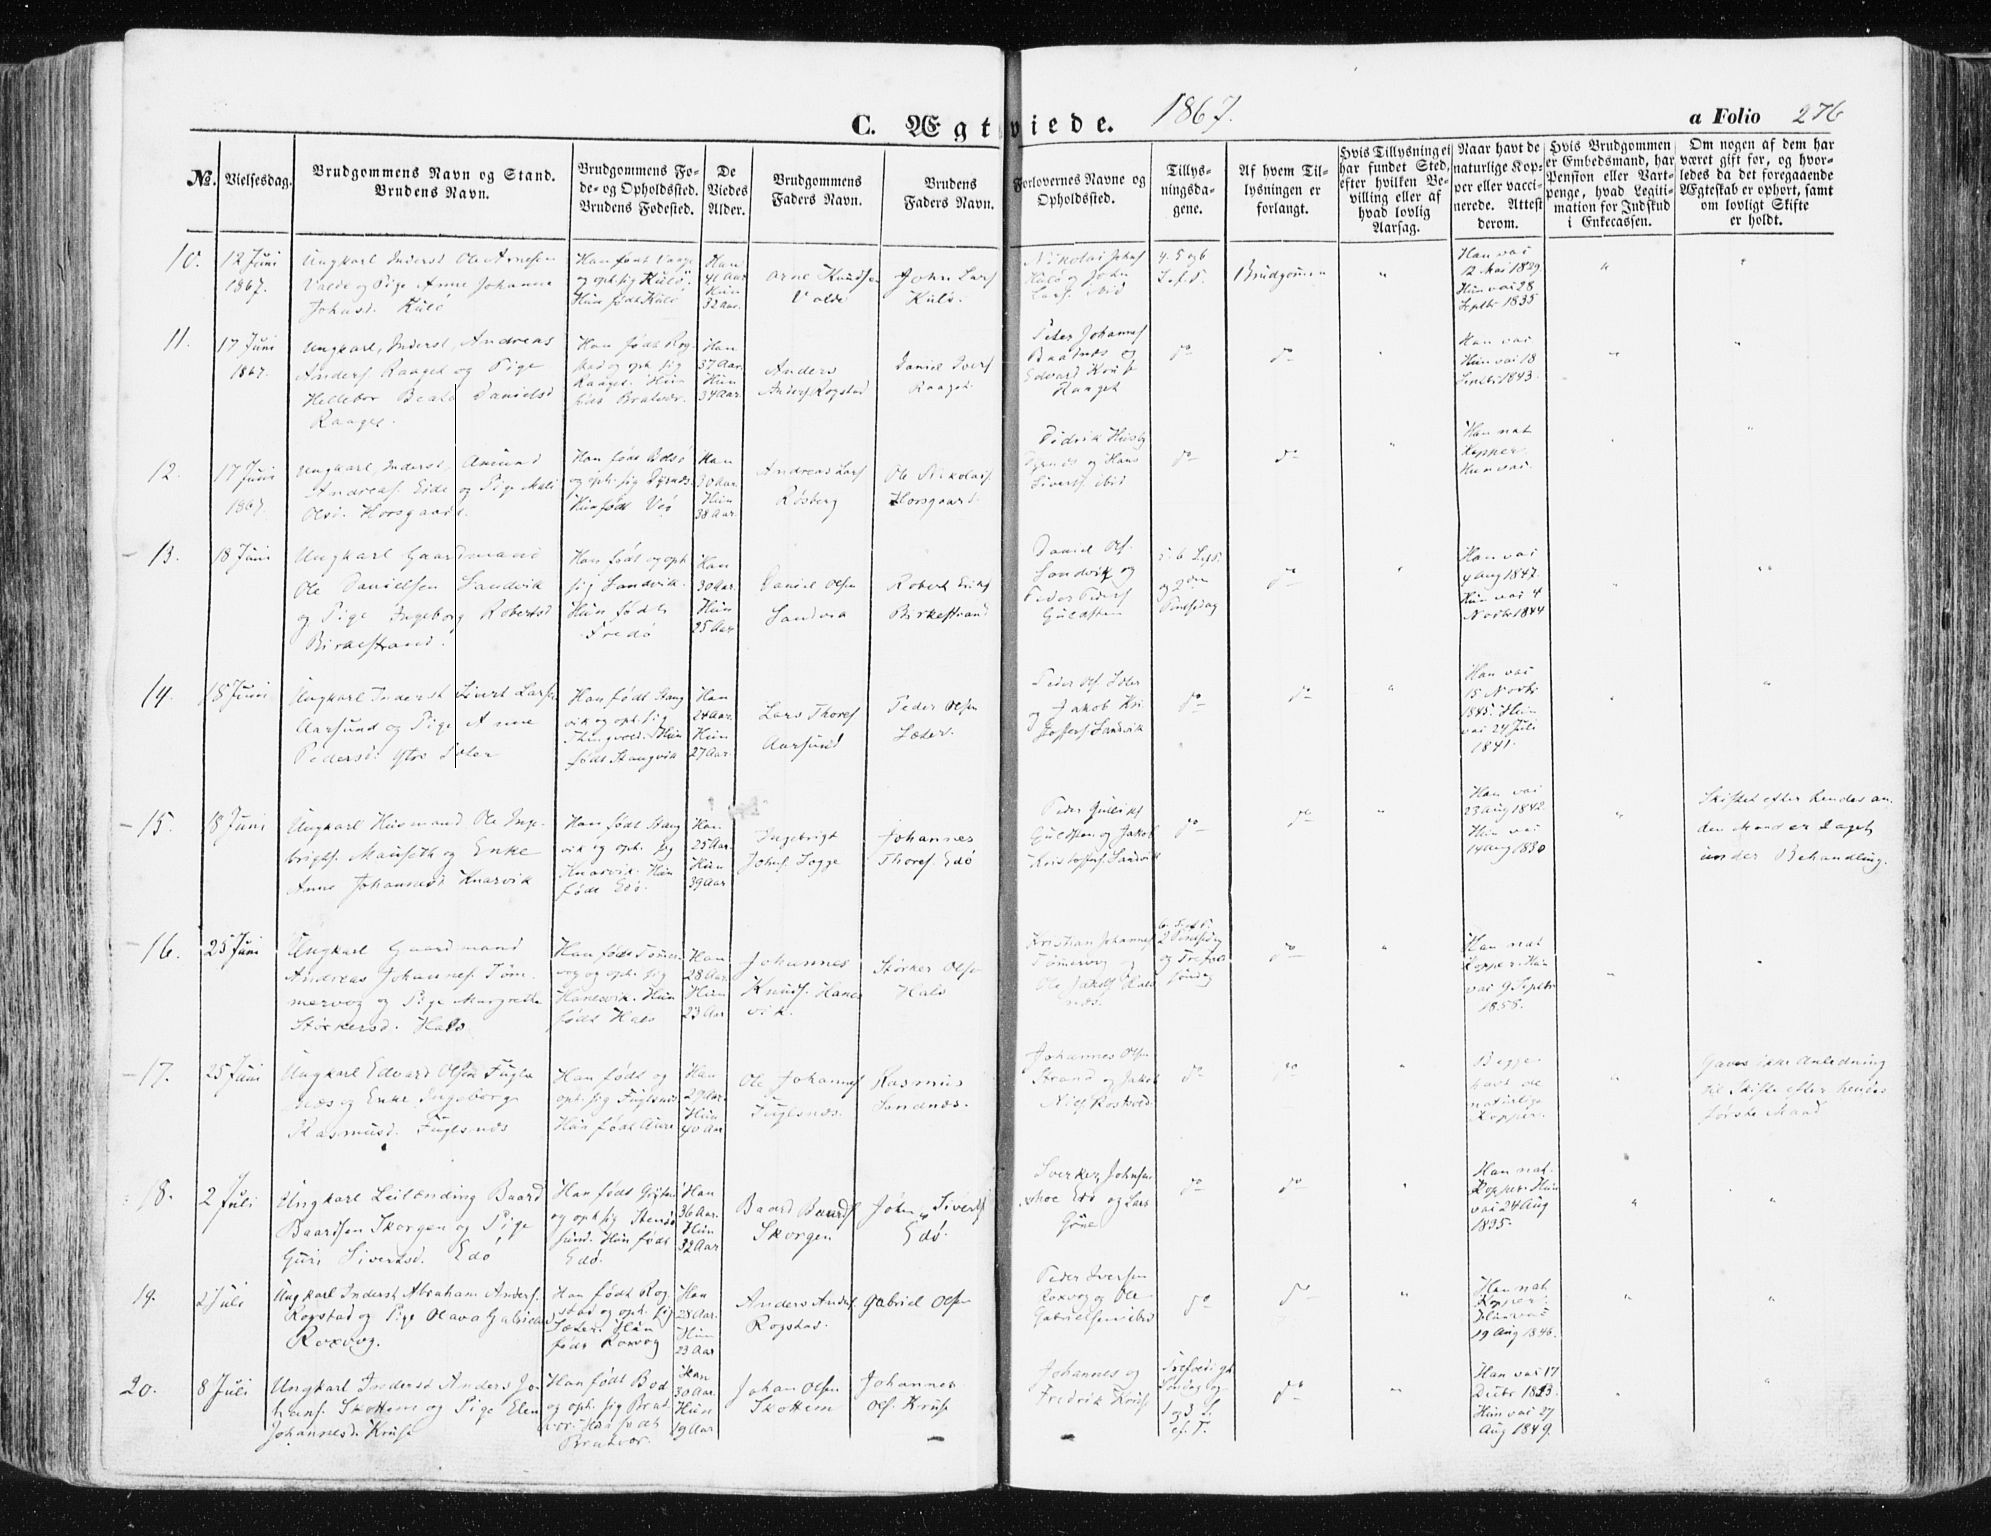 C. Ægtviede. 1867. a Folio 276
No.
Vielsesdag.
Brudgommens Navn og Stand.
Brudens Navn.
Brudgommens Fø-
de- og Opholdssted.
Brudens Fødested.
De
Viedes
Alder.
Brudgommens
Faders Navn.
Brudens
Faders Navn.
Forlovernes Navne og
Opholdssted.
Tillys-
ningsda-
gene.
Af hvem Til-
lysningen er
forlangt.
Hvis Tillysning ei
har fundet Sted,
efter hvilken Be-
villing eller af
hvad lovlig
Aarsag.
Naar havt de
naturlige Kop-
per eller vacci-
nerede. Attest
derom.
Hvis Brudgommen
er Embedsmand, har
Pension eller Vart-
penge, hvad Legiti-
mation for Indskud
i Enkecassen.
Om nogen af dem har
været gift før, og hvor-
ledes da det foregaaende
Ægteskab er ophørt, samt
om lovligt Skifte
er holdt.
10.
12 Juni
1867.
Ungkarl Inderst Ole Arnesen
Valde og Pige Anne Johanna
Johnsd. Kulø
og oph. sig Kulø.
Hun født Kulø
Han
41 Aar
Hun
32 Aar.
Arne Knudsen
Valde
John Lars
Kulø.
Nikolai Johns
Kulø og John
Lars. ibid
4. 5 og 6
Brudgommen
"
Han vac
12 Mai 1829
Hun vac 28
Septbr 1835
"
"
11.
17 Juni
1867.
Ungkarl, Inderst, Andreas
Anders Raaget og Pige
Hellebor Beate Danielsd
Raaget.
Han født Rog-
stad og oph. sig
Raaget. Hun
født Bratvær.
Han
37 Aar.
Hun
34 Aar.
Anders
Anders Rogstad
Daniel Ivers
Raaget
Peter Johannes
Edvard Krus
Raaget
do
do
"
Han vac
Hun vac 18
Septbr 1843.
"
"
12.
17 Juni
1867.
Ungkarl, Inderst, Amund
Andreas. Eide og Pige Mali
Olsd. Horsgaard.
Han født Edsø
og oph. sig Dyrnes.
Hun født Veø
Han
30 Aar.
Hun
38 Aar.
Andreas Lars
Røsberg
Ole Nikolais
Horsgaard.
Fredrik Husby
Dyrnes og Hans
Siverts ibid
do
do
"
Han nat
Kopper.
Hun vac.
"
"
13.
18 Juni
Ungkarl Gaardmand
Ole Danielsen Sandvik
og Pige Ingeborg Robertsd
Birkestrand.
Han født og oph.
sig Sandvik.
Hun født
Fredø
Han
30 Aar.
Hun
25 Aar
Daniel Olsen
Sandvik
Robert Eriks
Birkestrand
Daniel Ols.
Sandvik og
Peder Peders
Guldsten
og 2den
Pintsedag
do
"
Han vac
4 Aug 1847.
Hun vac 4
Novbr 1844
"
"
14.
18 Juni
Ungkarl Inderst Sivert Larsen
Aarsund og Pige Anne
Pedersd. Ytre Sæter
Han født Stang-
vik og oph. sig
Thingvold. Hun
født Stangvik
Han
24 Aar.
Hun
27 Aar.
Lars Thores
Aarsund
Peder Olsen
Sæter.
Peder Ols. Sæter
og Jakob Kri-
stoffers Sandvik
do
do
"
Han vac
15 Novbr
1845. Hun
vac 24 Juli
1841.
"
"
15.
18 Juni
Ungkarl Husmand Ole Inge-
brigts. Mauseth og Enke
Anne Johannesd Knarvik
Han født Stang-
vik og oph. sig
Knarvik. Hun
født Edø.
Han
25 Aar.
Hun
39 Aar
Ingebrigt
Johns. Sogge
Johannes
Thores. Edø
Peder Gulliks
Guldsten og Jakob
Kristoffers Sandvik
do
do
"
Han vac
23 Aug 1842.
Hun vac
14 Aug 1830
"
Skiftet efter hendes an-
den Mand er taget
under Behandling.
16.
25 Juni
Ungkarl Gaardmand
Andreas Johannes. Tøm-
mervog og Pige Margrethe
Størkersd. Hals
Han født Tømer-
vog og oph. sig
Hanesvik. Hun
født Hals
Han
28 Aar.
Hun
23 Aar
Johannes
Knuds. Hanes-
vik.
Størker Ols
Hals
Kristian Johannes
Tømervog og
2 Pintsedag
og Trefol.
Søndag
do
"
Han nat
Kopper. Hun
vac 9 Septbr
1855.
"
"
17.
25 Juni
Ungkarl Edvard Olsen Fugle-
næs og Enke Ingeborg
Rasmusd. Fuglsnæs
Han født og
oph. sig Fuglsnæs.
Hun født Aure
Han
29 Aar.
Hun
40 Aar
Ole Johannes
Fuglsnæs.
Rasmus
Sandnæs.
Johannes Olsen
Strand og Jakob
Nils. Roskvold.
do
do
"
Begge
havt de
naturlige
Kopper.
"
Gaves ikke Anledning
til Skifte efter hendes
første Mand
18.
2 Juli
Ungkarl Leilænding Baard
Baardsen Skorgen og Pige
Guri Sivertsd. Edø
og oph. sig Stensø-
sund. Hun født
Edø.
Han
36 Aar.
Hun
32 Aar.
Baard Baards
Skorgen
John Siverts
Edø.
Sverker Johnsen
Edø og Lars
do
do
"
Han nat.
Kopper. Hun
vac 24 Aug
1835.
"
"
19.
2 Juli
Ungkarl Inderst Abraham Anders.
Rogstad og Pige Olava Gabrielsd
Roxvog.
Han født Rog-
stad og oph. sig
Sæter. Hun
født Roxvog
Han
28 Aar.
Hun
23 Aar
Anders Anders
Rogstad.
Gabriel Olsen
Peder Iversen
Roxvog og Ole
Gabrielsen ibid
do
do
"
Han nat
Kopper.
Hun vac
19 Aug 1846.
"
"
20.
8 Juli
Ungkarl Inderst Anders Jo-
hans. Skottem og Pige Elen
Johannesd. Krus
Han født Bod
og oph. sig Brat-
vær. Hun født
Bratvær.
Han
30 Aar.
Hun
19 Aar
Johan Olsen
Skottem
Johannes
Ols. Krus
Johannes og
Fredrik Krus
Søndag og
1 og 3 S.
ef. T.
do
"
Han vac 17
Decbr 1843.
Hun vac 27
Aug 1849.
"
"